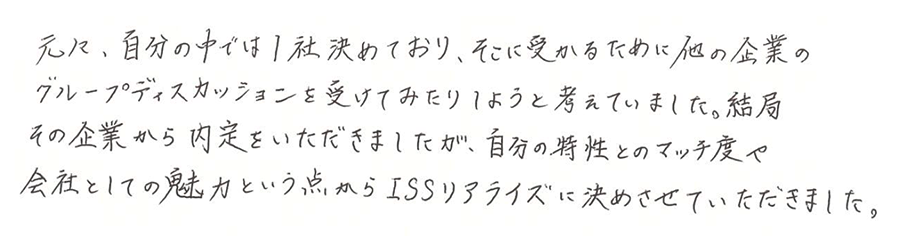 元々、自分の中では1社決めており、そこに受かるために他の企業の
グループディスカッションを受けてみたりしようと考えていました。結局
その企業から内定をいただきましたが、自分の特性とのマッチ度や
会社としての魅力という点からISSリアライズに決めさせていただきました。